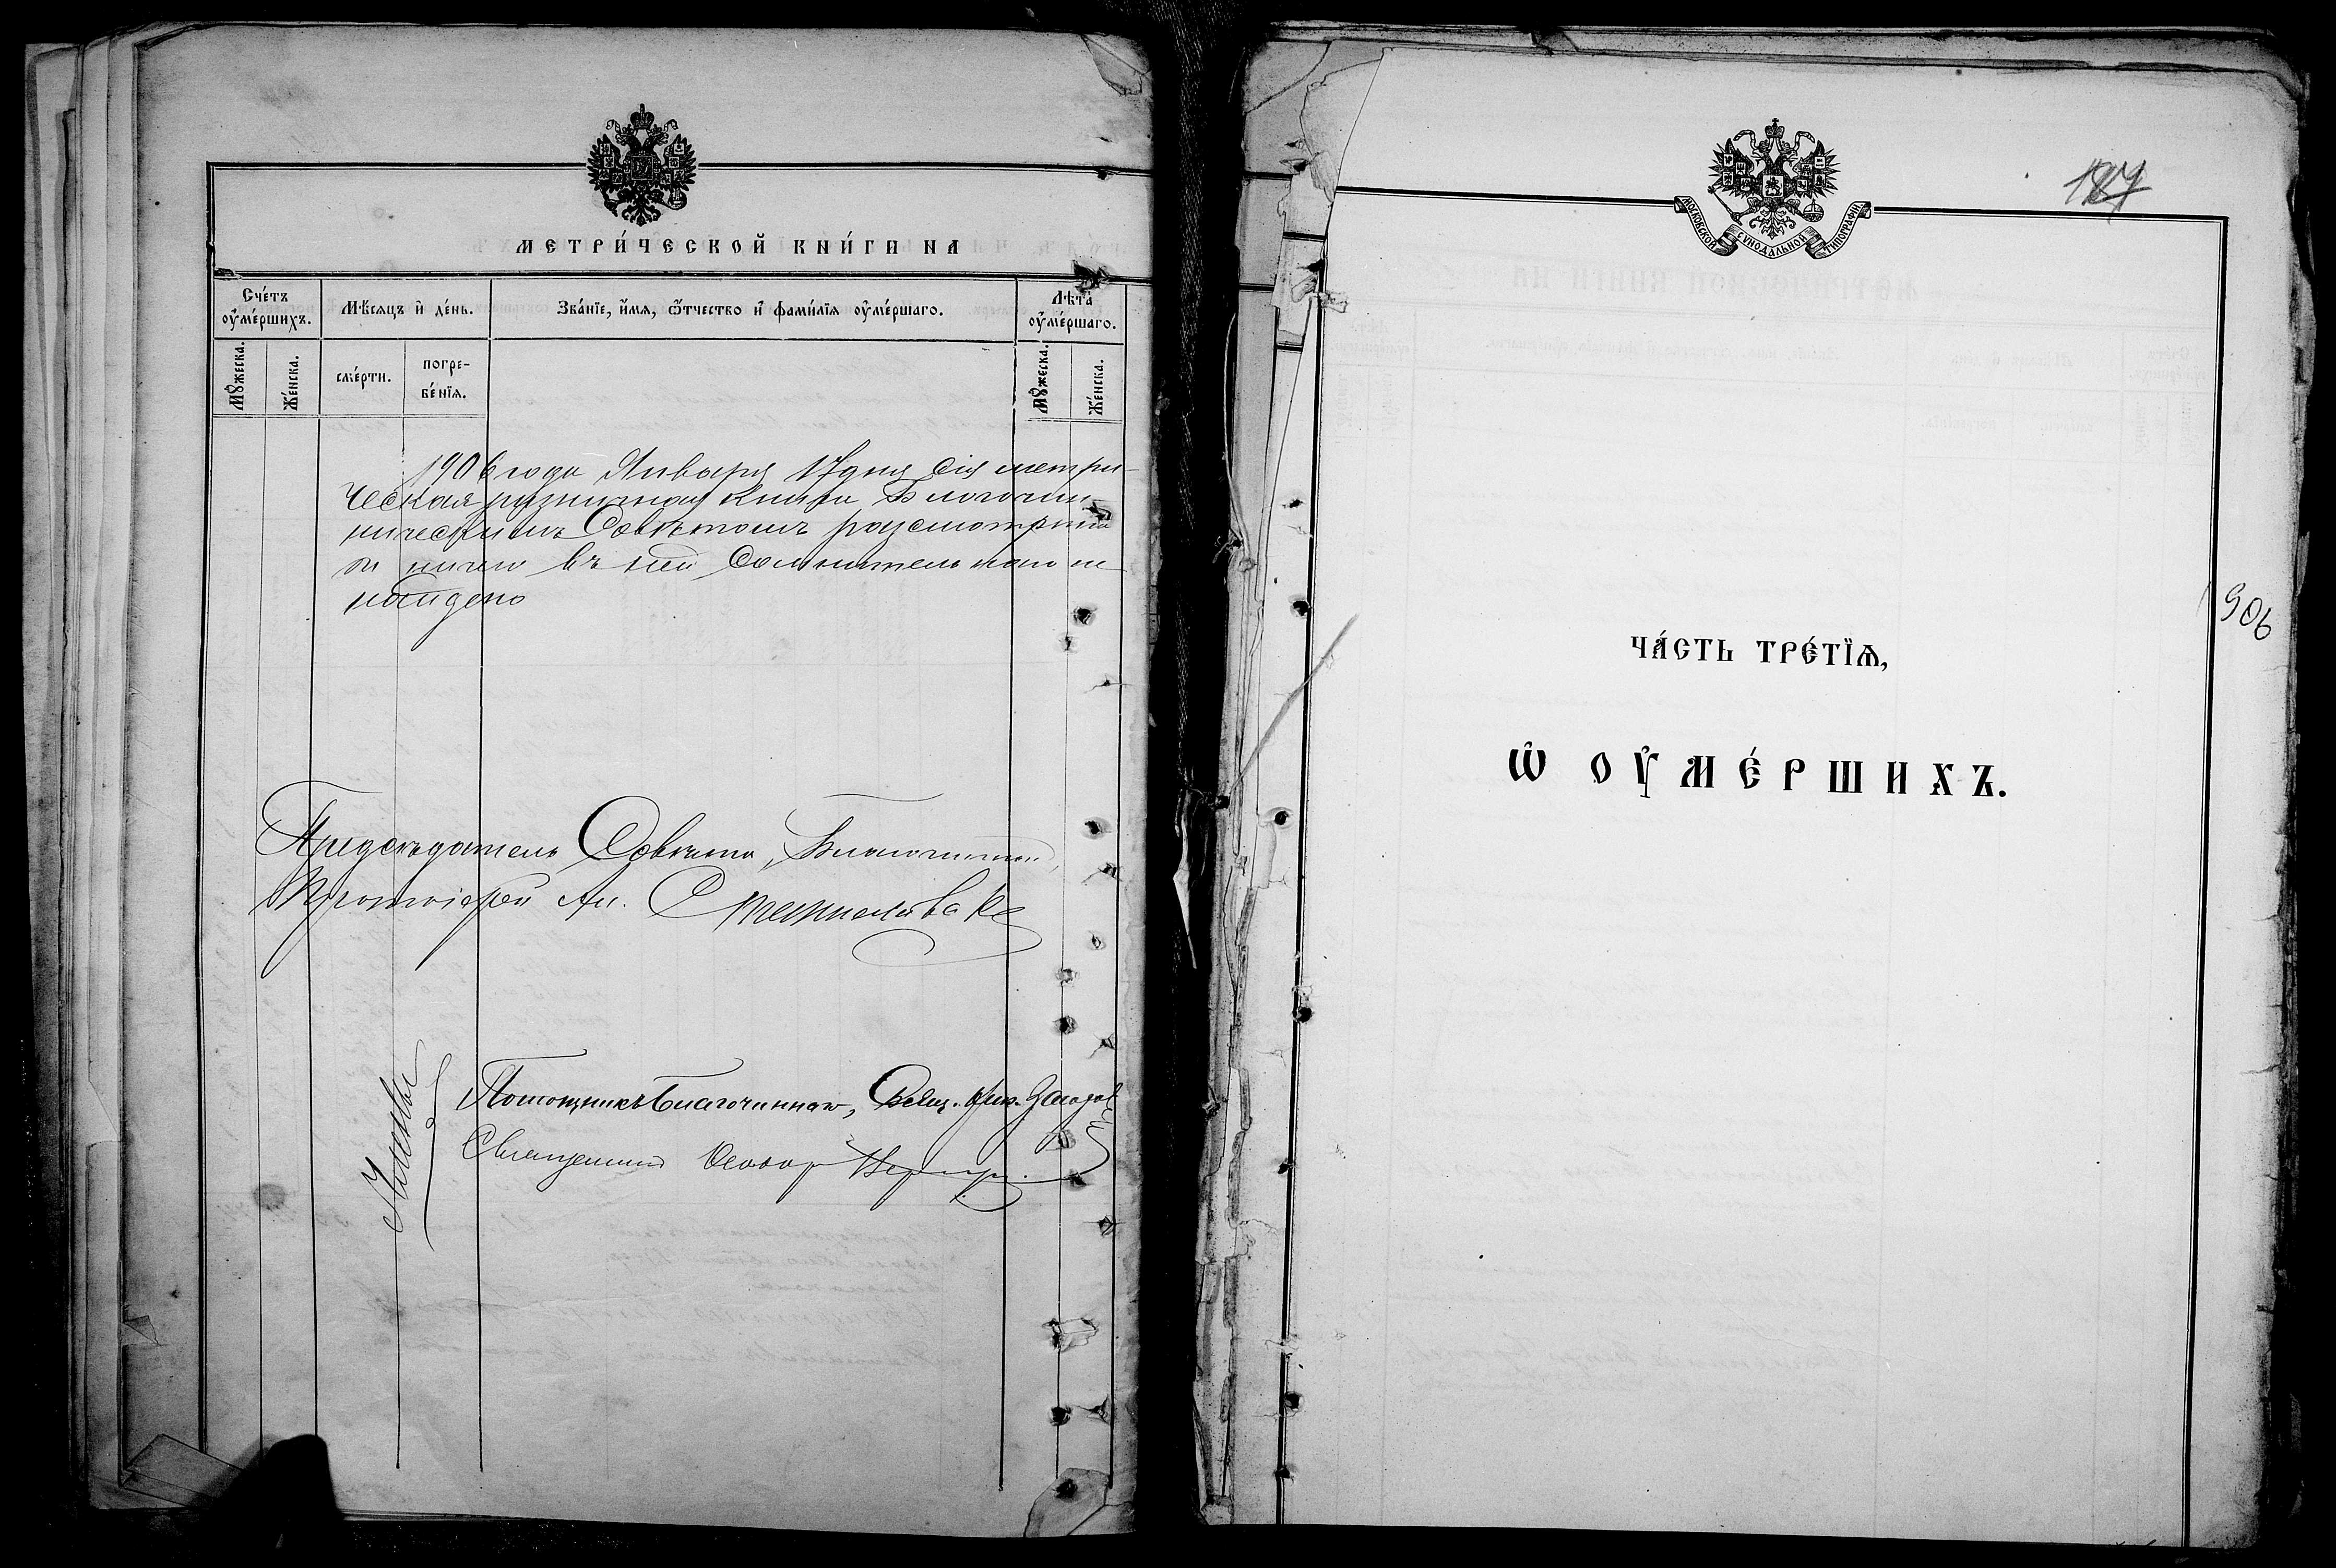 МЕТРИ́ЧЕСКОЙ КНИ́ГИ НА
Сче́тъ ᲂу҆ме́ршихъ.
Мѣ́сяцъ и҆ де́нь.
Зва́нїе, и҆́мя, ѻ҆́тчество и҆ фами́лїя ᲂу҆ме́ршаго.
Лѣ́та ᲂу҆ме́ршаго.
Мꙋ́жеска.
Же́нска.
сме́рти.
погре-
бе́нїя.
Мꙋ́жеска.
Же́нска.
1906 года Января 17 дня сія метри-
ческая приходская книга Благочин-
ническимъ Совѣтомъ разсмотрѣна
и ничего въ ней сомнительнаго не
найдено
Предсѣдатель Совѣта, Благочинный,
Протоіерей Ал.
Члены
Помощникъ Благочиннаго, Свящ.
Священникъ Ѳеодоръ
МОСКОВСКОЙ СѴНОДАЛЬНОЙ ТИПОГРАФІИ
ЧА́СТЬ ТРЕ́ТЇѦ,
Ѡ҆ ОУ҆МЕ́РШИХЪ.
1906